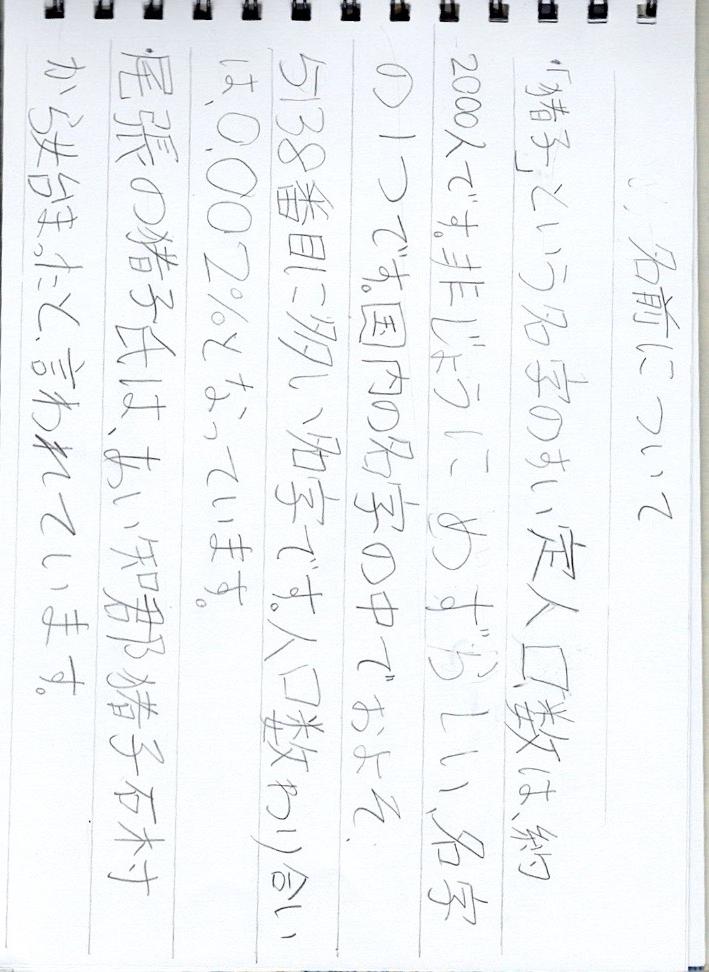 名前について
・「猪子」という名字のすい定人口数は、約
2000人です。非じょうにめずらしい、名字
の1つです。国内の名字の中でおよそ、
5138番目に多い名字です。人口数わり合い
は、0.002%となっています。
・尾張の猪子氏は、あい知郡猪子石村
から始まったと、言われています。